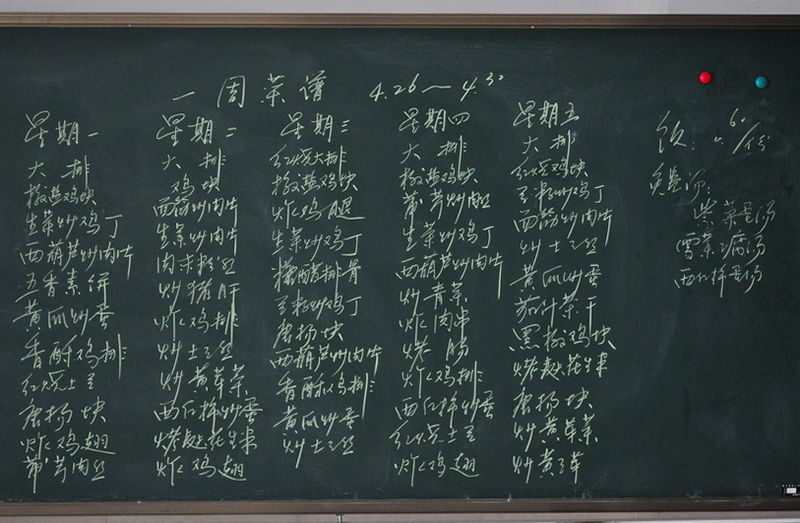 一周菜谱 4.26～4.30
星期一
大排
椒盐鸡块
生菜炒鸡丁
西葫芦炒肉片
五香素饼
黄瓜炒蛋
香酥鸡排
红烧土豆
唐扬块
炸鸡翅
莴笋肉丝
星期二
大排
鸡块
面筋炒肉片
生菜炒肉片
肉末粉丝
炒猪肝
炸鸡排
炒土豆丝
炒黄芽菜
西红柿炒蛋
烤麸花生米
炸鸡翅
星期三
红烧大排
椒盐鸡块
炸鸡腿
生菜炒鸡丁
糖醋排骨
豆粉炒鸡丁
唐扬块
西葫芦炒肉片
香酥鸡排
黄瓜炒蛋
炒土豆丝
星期四
大排
椒盐鸡块
莴笋炒肉丝
生菜炒鸡丁
西葫芦炒肉片
炒青菜
炸肉串
烤肠
炸鸡排
西红柿炒蛋
红烧土豆
炸鸡翅
星期五
大排
红烧鸡块
面筋炒肉片
炒土豆丝
黄瓜炒蛋
茄汁茶干
黑椒鸡块
烤麸花生米
唐扬块
炒黄芽菜
炒黄豆芽
免费汤：
紫菜蛋汤
西红柿蛋汤